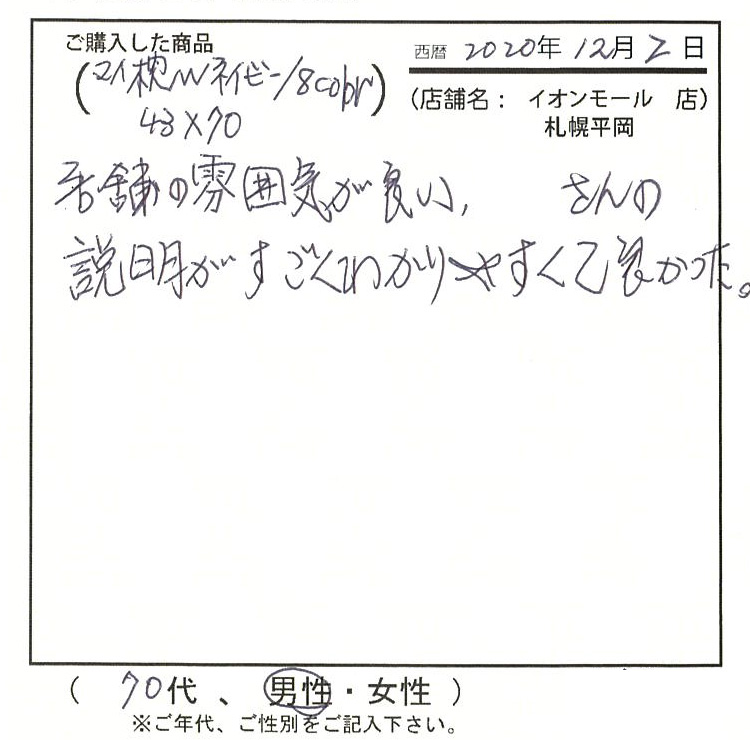 ご購入した商品
西暦 2020年 12月 2日
(マイ枕Wネイビー/8color)
43×70
(店舗名： イオンモール 店)
札幌平岡
店舗の雰囲気が良い、 さんの
説明がすごくわかりやすくて良かった。
( 70代 、 男性・女性 )
※ご年代、ご性別をご記入下さい。